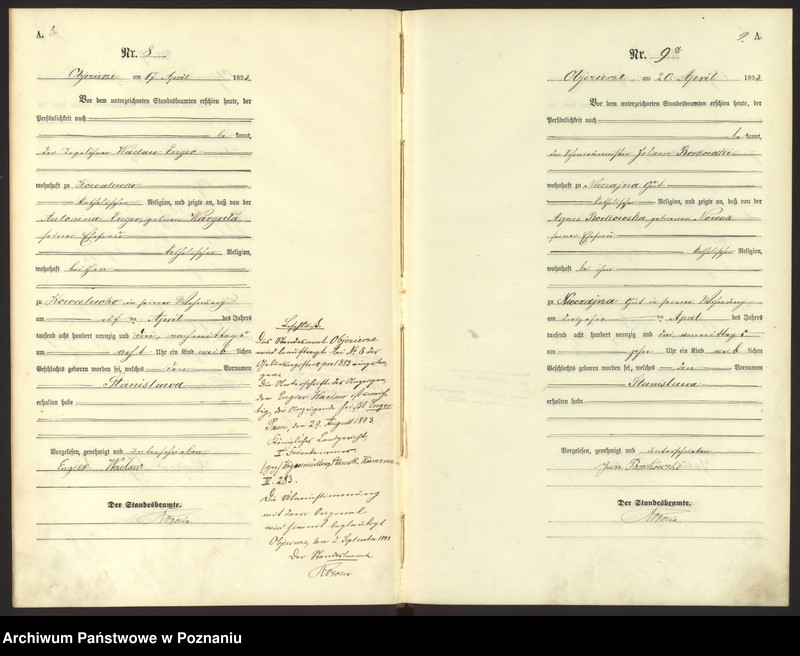 A.
Nr. 8
Objezierze am 17 April 1893
Vor dem unterzeichneten Standesbeamten erschien heute, der
Persönlichkeit nach
be kannt,
der Tagelöhner Waclaw Enger
wohnhaft zu Kowalewko
katholischer Religion, und zeigte an, daß von der
Antonina Enger, geborenen Wargula,
seiner Ehefrau
katholischer Religion,
wohnhaft bei ihm
zu Kowalewko in seiner Wohnung
am elf ten April des Jahres
tausend acht hundert neunzig und drei, nachmittags
um acht Uhr ein Kind weib lichen
Geschlechts geboren worden sei, welches den Vornamen
Stanislawa
erhalten habe
Vorgelesen, genehmigt und unterschrieben
Wacław
Der Standesbeamte.
Beschluß.
Das Standesamt Objezierze
wird beauftragt bei Nr. 8 des
Geburtsregisters pro 1893
Die Unterschrift des Anzeigenden
Waclaw ist
der Anzeigende heißt Enger
Posen, den 29. August 1893
Königliches Landgericht,
I
IV. 283.
Die Uebereinstimmung
mit dem Original
wird hiermit beglaubigt
Objezierze, den 2. September 1893
Der Standesbeamte
9. A.
Nr. 9
Objezierze, am 20 April 1893
Vor dem unterzeichneten Standesbeamten erschien heute, der
Persönlichkeit nach
be kannt,
der Johann Borkowski
wohnhaft zu Nieczajna Gut
katholischer Religion, und zeigte an, daß von der
Agnes Borkowska, geborenen Nowak
seiner Ehefrau
katholischer Religion,
wohnhaft bei ihm
zu Nieczajna Gut in seiner Wohnung
am ten April des Jahres
tausend acht hundert neunzig und drei, vormittags
um zehn Uhr ein Kind weib lichen
Geschlechts geboren worden sei, welches den Vornamen
Stanislawa
erhalten habe
Vorgelesen, genehmigt und unterschrieben
Jan Borkowski
Der Standesbeamte.
Archiwum Państwowe w Poznaniu